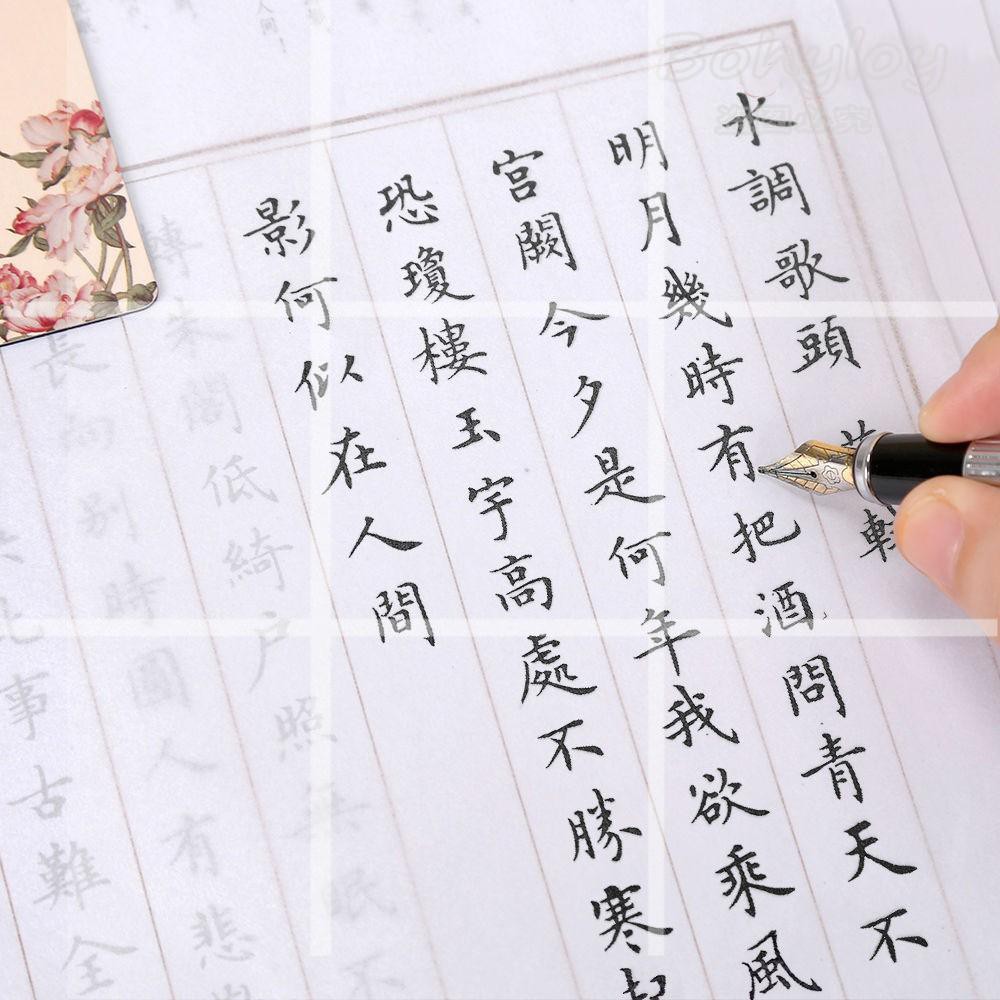 水調歌頭
明月幾時有把酒問青天不
宮闕今夕是何年我欲乘風
恐瓊樓玉宇高處不勝寒起
影何似在人間
轉朱閣低綺户照無眠不
長向別時圓人有悲
此事古難全
人間
Bohyloy